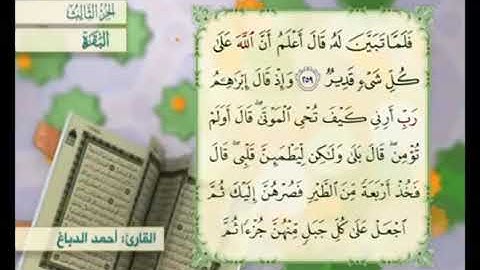 الجزء الثالث
البقرة
فَلَمَّا تَبَيَّنَ لَهُ قَالَ أَعْلَمُ أَنَّ اللَّهَ عَلَىٰ
كُلِّ شَيْءٍ قَدِيرٌ ٢٥٩ وَإِذْ قَالَ إِبْرَٰهِـۧمُ
رَبِّ أَرِنِي كَيْفَ تُحْيِ الْمَوْتَىٰ ۖ قَالَ أَوَلَمْ
تُؤْمِن ۖ قَالَ بَلَىٰ وَلَٰكِن لِّيَطْمَئِنَّ قَلْبِي ۖ قَالَ
فَخُذْ أَرْبَعَةً مِّنَ الطَّيْرِ فَصُرْهُنَّ إِلَيْكَ ثُمَّ
اجْعَلْ عَلَىٰ كُلِّ جَبَلٍ مِّنْهُنَّ جُزْءًا ثُمَّ
القارئ: أحمد الدباغ